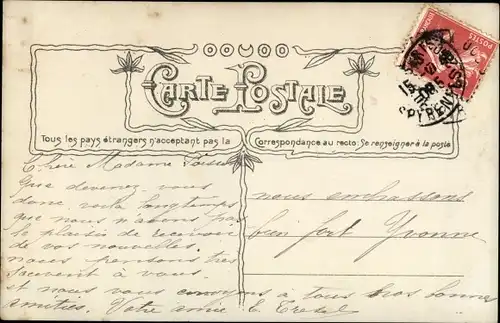 CARTE POSTALE
Tous les pays étrangers n'acceptent pas la Correspondance au recto: Se renseigner à la poste
POSTES
15
08
PYREN
Chère Madame
Que devenez vous
donc, voila longtemps
que nous n'avons pas
le plaisir de recevoir
de vos nouvelles.
nous pensons très
souvent à vous
et nous vous envoyons à tous nos bonne
amitiés. Votre amie E.
nous embrassons
bien fort Yvonne